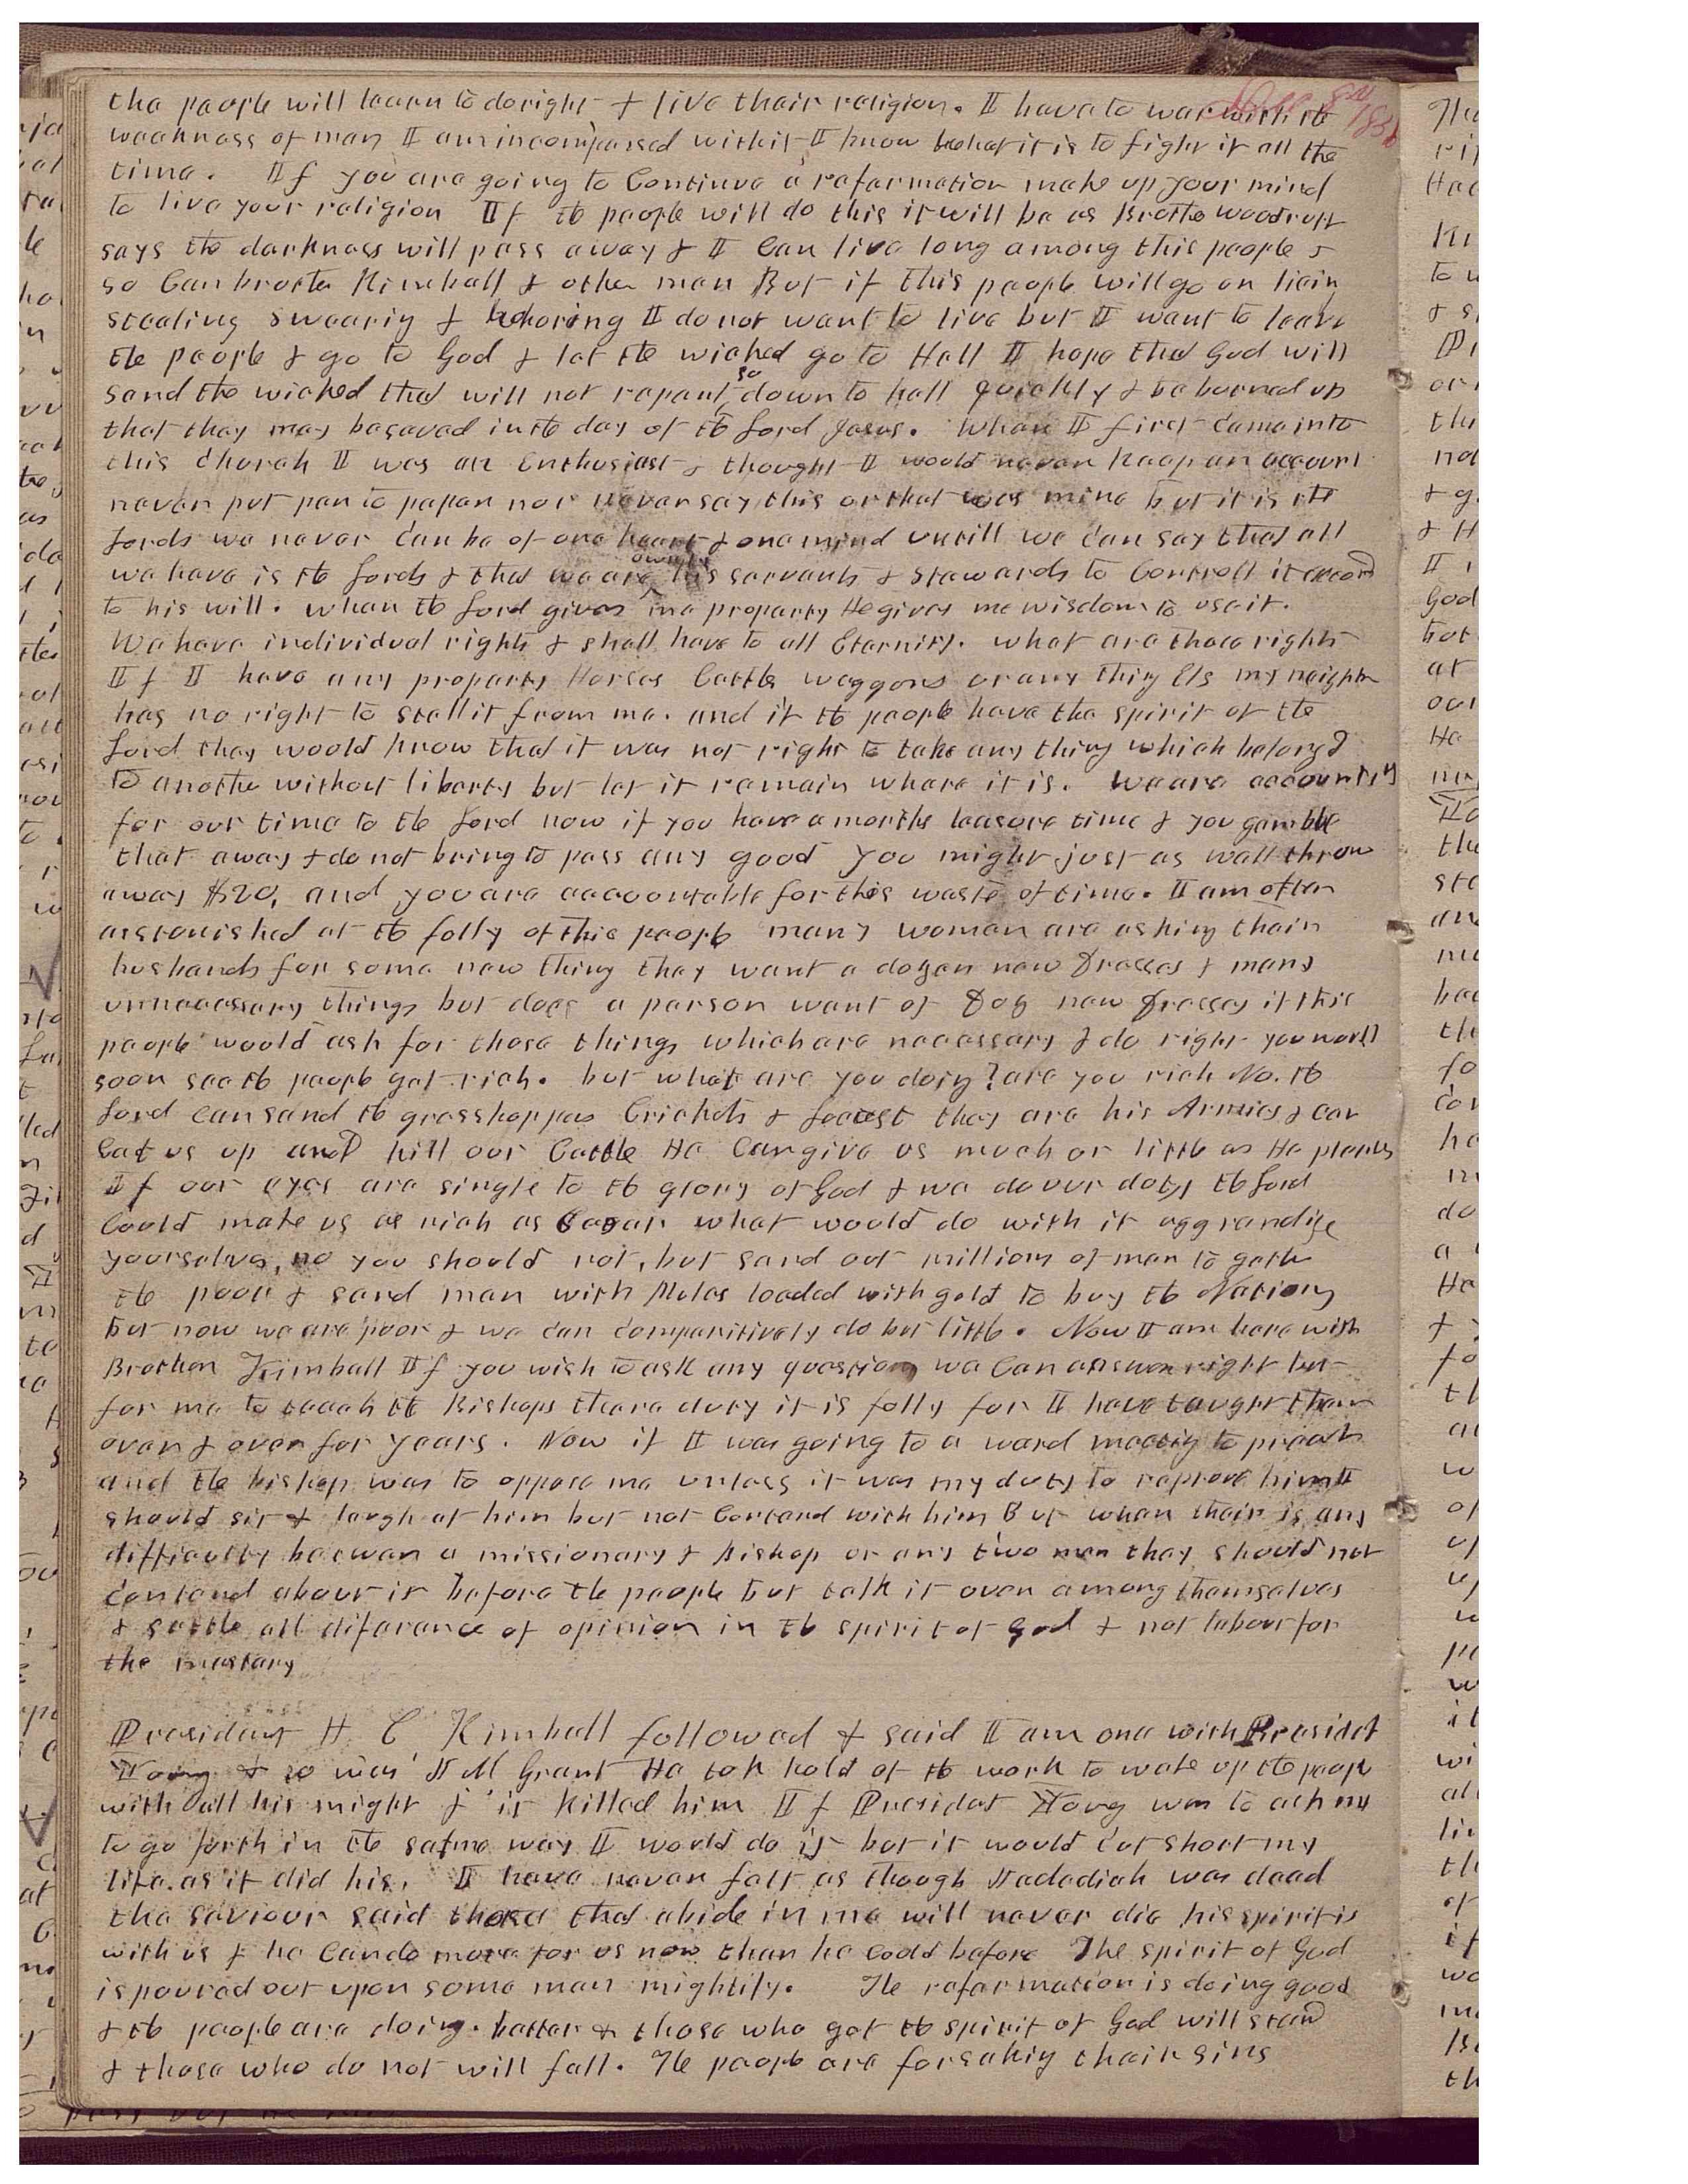 the people will learn to do right & live their religion. I have to war with the
weakness of man I am incompassed with it I know what it is to fight it all the
time. If you are going to Continue a reformation make up your mind
to live your religion If the people will do this it will be as Brother Woodruff
says the darkness will pass away & I Can live long among this people &
so Can brother Kimball & other men But if this people will go on liein
stealing swearing & whoring I do not want to live but I want to leave
the people & go to God & let the wicked go to Hell I hope that God will
send the wicked that will not repent so down to hell quickly & be burned up
that they may be saved in the day of the Lord Jesus. When I first Came into
this Church I was an Enthusiast & thought I would never keep an account
never put pen to paper nor never say this or that was mine but it is the
Lords we never Can be of one heart & one mind untill we Can say that all
we have is the Lords & that we are ownly his servants & stewards to Controll it accord
to his will. when the Lord gives me property He gives me wisdom to use it.
We have individual rights & shall have to all Eternity. what are those rights
If I have any property Horses Cattle waggons or any thing Els my neighbor
has no right to steal it from me. and if the people have the spirit of the
Lord they would know that it was not right to take any thing which belongd
to another without liberty but let it remain where it is. We are accountable
for our time to the Lord now if you have a months leasure time & you gamble
that away & do not bring to pass any good you might just as well throw
away $20, and you are aacoountable for this waste of time. I am often
asstonished at the folly of this people many women are asking their
husbands for some new thing they want a dozen new Dresses & many
unnecessary things but does a person want of Doz new Dresses if this
people would ask for those things which are necessary & do right you would
soon see the people get rich. but what are you doing? are you rich No. the
Lord Can send the grasshoppers Crickets & Locust they are his Armies & can
Eat us up and kill our Cattle He Can give us much or little as He pleases
If our eyes are single to the glory of God & we do our duty the Lord
Could make us as rich as Cesar what would do with it aggrandize
yourselves, no you should not, but send out millions of men to gather
the poor & send men with Mules loaded with gold to buy the Nations
but now we are poor & we Can Comparitively do but little. Now I am here with
Brother Kimball If you wish to ask any questions we Can answer right but
for me to teach the Bishops there duty it is folly for I have taught them
over & over for years. Now if I was going to a ward meeting to preach
and the bishop was to oppose me unless it was my duty to reprove him I
should sit & laugh at him but not Contend with him But when their is any
difficulty between a missionary & bishop or any two men they should not
Contend about it before the people but talk it over among themselves
& settle all diferance of opinion in the spirit of God & not labour for
the mastery
President H C Kimball followed & said I am one with Presidet
Young & so was J M Grant He took hold of the work to wake up the people
with all his might & it killed him If Presidet Young was to ask me
to go forth in the same way I would do it but it would Cut short my
life. as it did his. I have never felt as though Jedediah was dead
the saviour said those that abide in me will never die his spirit is
with us & he Can do more for us now than he could before The spirit of God
is poured out upon some men mightily. The reformation is doing good
& the people are doing better & those who get the spirit of God will stand
& those who do not will fall. The people are forsaking their sins